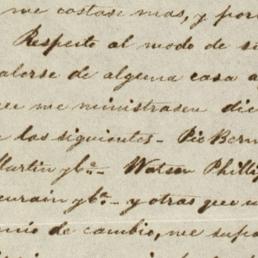 me costase mas, y por
Respecto al modo de si
valerse de alguna casa a
que me ministrasen dic
los siguientes - Pio Berm
Martin y Ca. - Watson Phillip
y Ca. - y otras que
mio de cambio, me